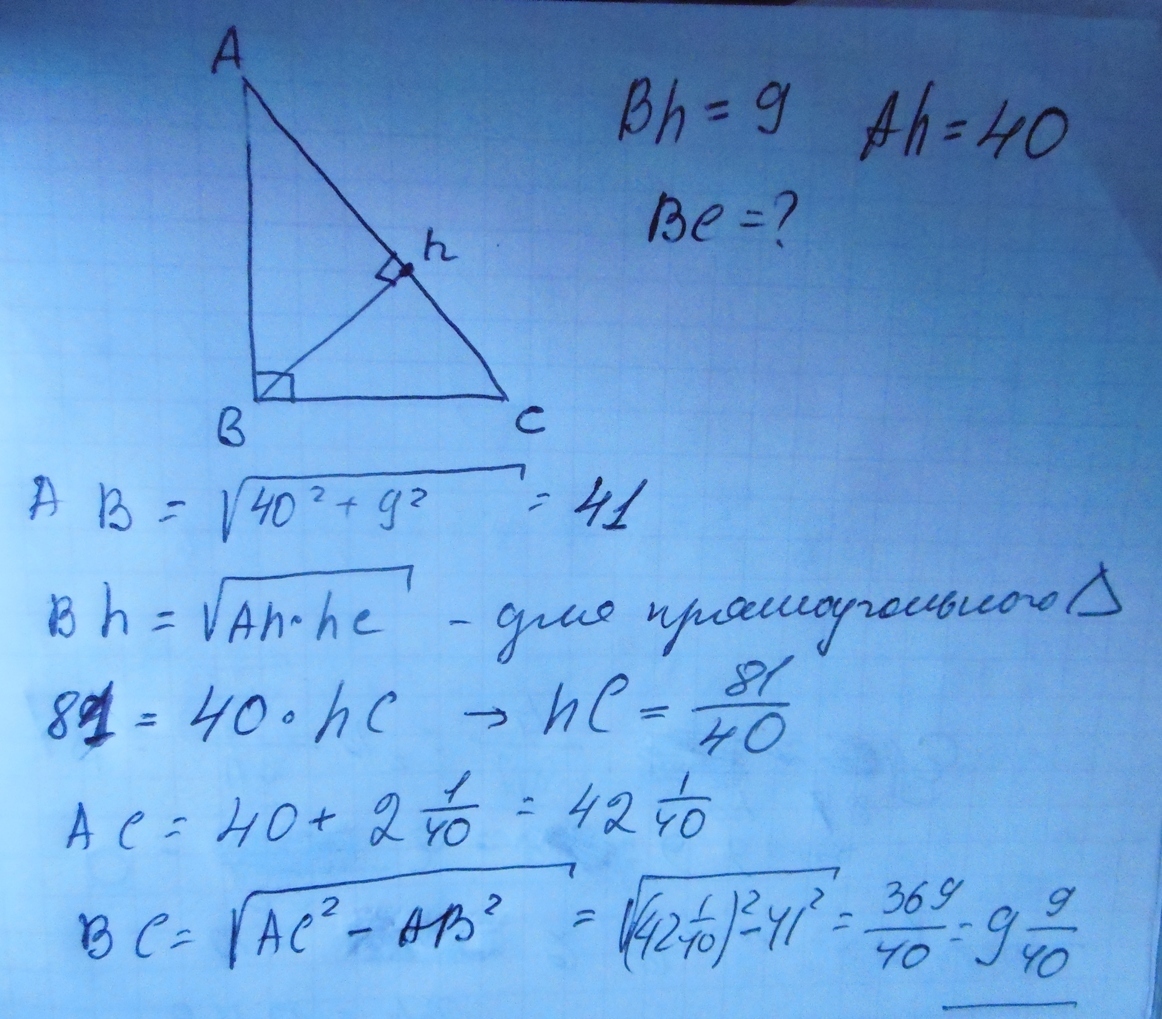 A
Bh = 9 Ah = 40
Bc = ?
h
B
C
AB = √(40² + 9²) = 41
Bh = √(Ah·hc) - для прямоугольного Δ
81 = 40 · hC → hC = 81/40
Ac = 40 + 2 1/40 = 42 1/40
BC = √(AC² - AB²) = √((42 1/40)² - 41²) = 369/40 = 9 9/40